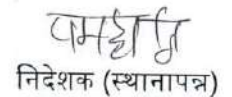 निदेशक (स्थानापन्न)